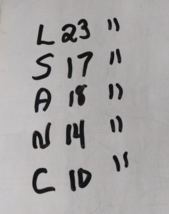 L 23 "
S 17 "
A 18 "
N 14 "
C 10 "